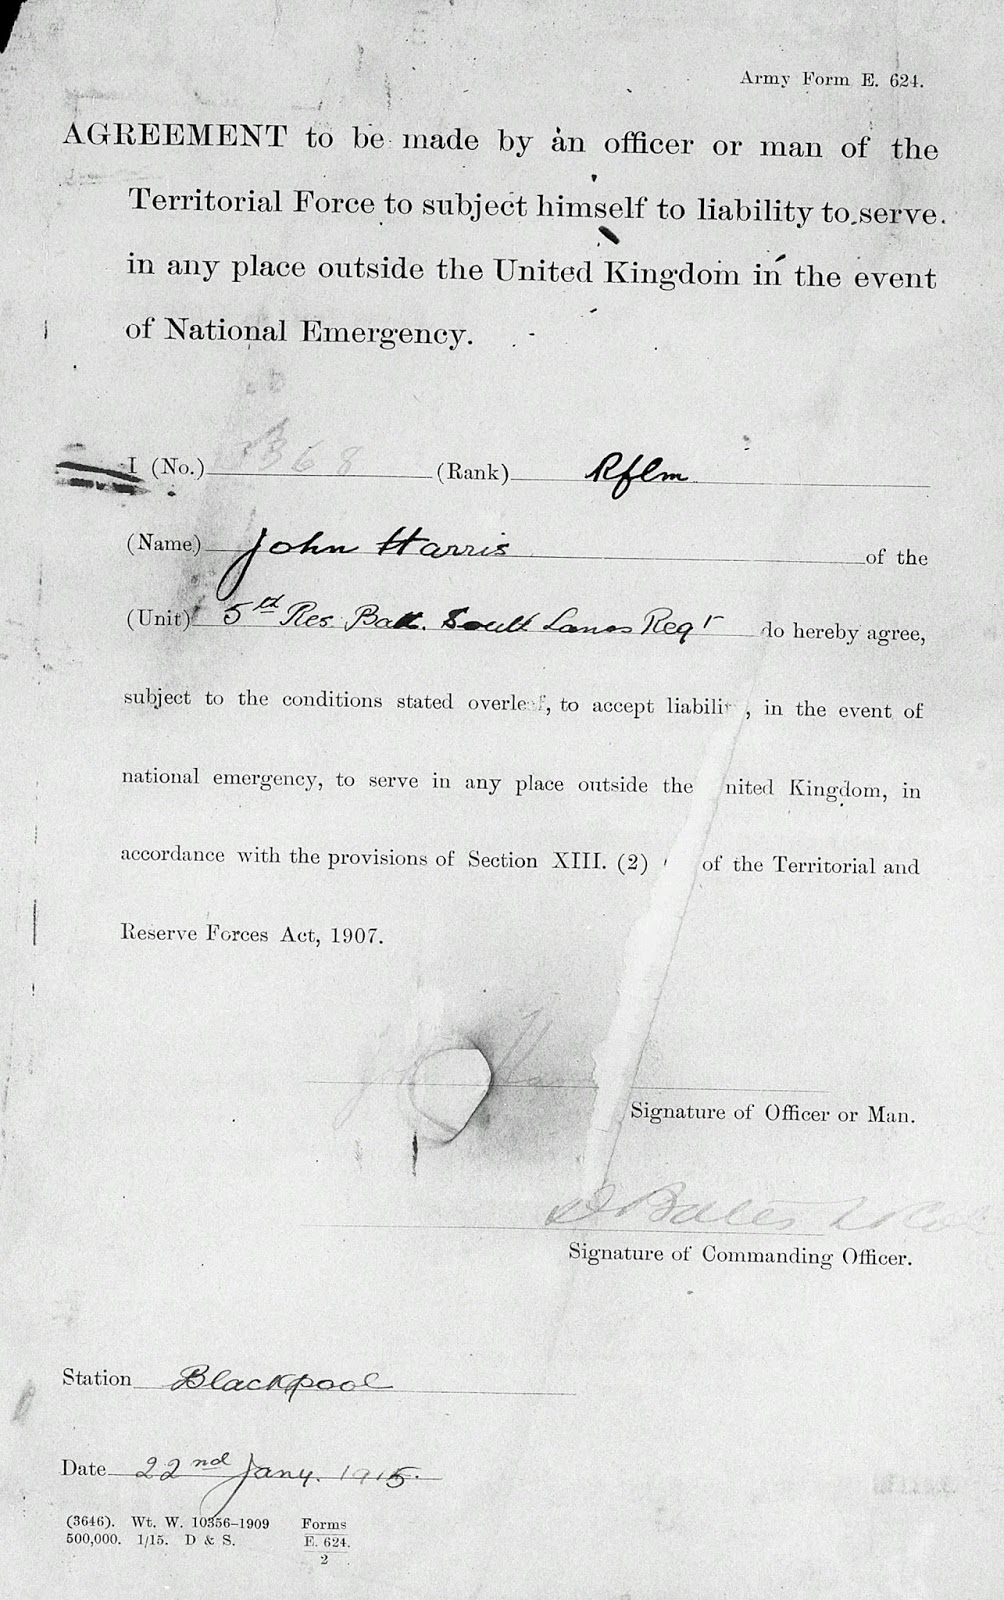 Army Form E. 624.
AGREEMENT to be made by an officer or man of the
Territorial Force to subject himself to liability to serve
in any place outside the United Kingdom in the event
of National Emergency.
I (No.) 368 (Rank) Rflm
(Name) John Harris of the
(Unit) 5th Res. Batt. South Lancs Regt do hereby agree,
subject to the conditions stated overleaf, to accept liabili , in the event of
national emergency, to serve in any place outside the nited Kingdom, in
accordance with the provisions of Section XIII. (2) of the Territorial and
Reserve Forces Act, 1907.
Signature of Officer or Man.
Bates
Signature of Commanding Officer.
Station Blackpool
Date 22nd Jany. 1915.
(3646). Wt. W. 10356-1909 Forms
500,000. 1/15. D & S. E. 624.
2